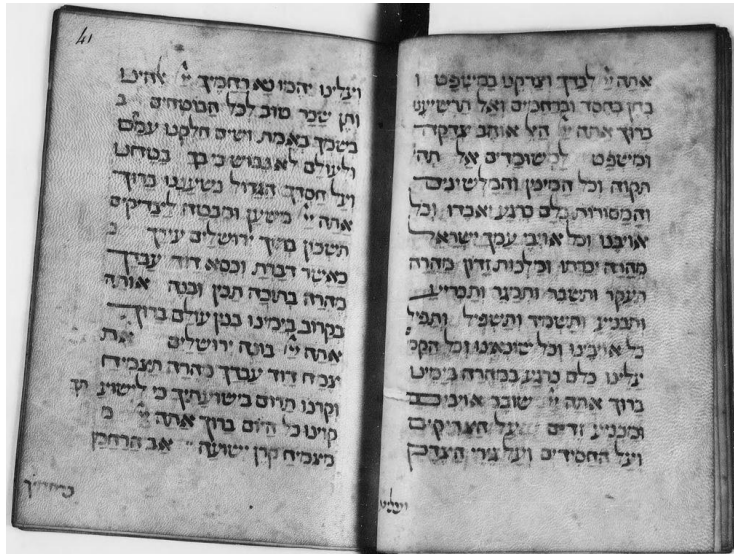 אתה יי לבדך וצדקנו במישפט ו
בחן בחסד וברחמים ואל תרשיענו
ברוך אתה יי האל אוהב צדקה
ומישפט למשומדים אל תהי
תקוה וכל המינין והמלשינים
והמסורות כלם כרגע יאבדו וכל
אויבנו וכל אויבי עמך ישראל
מהרה יכרתו ומלכות זדון מהרה
תעקר ותשבר ותמגר ותכריע
ותכניע ותשמיד ותשפיל ותפיל
כל אויבינו וכל שונאינו וכל הקמי
עלינו כלם כרגע במהרה בימינו
ברוך אתה יי שובר אויבים
ומכניע זדים על הצדיקים
ועל החסידים ועל גירי הצדק
ועלינו
41
ועלינו יהמו נא רחמיך יי אלהינו
ותן שכר טוב לכל הבוטחים ב
בשמך באמת ושים חלקנו עמם
ולעולם לא נבוש כי בך בטחנו
ועל חסדך הגדול נשעננו ברוך
אתה יי מישען ומבטח לצדיקים
תשכון בתוך ירושלים עירך כ
כאשר דברת וכסא דוד עבדך
מהרה בתוכה תכין ובנה אותה
בקרוב בימינו בנין עולם ברוך
אתה יי בונה ירושלים את
צמח דוד עבדך מהרה תצמיח
וקרנו תרום בישועתיך כי לישועתך
קוינו כל היום ברוך אתה יי מ
מצמיח קרן ישועה אב הרחמן